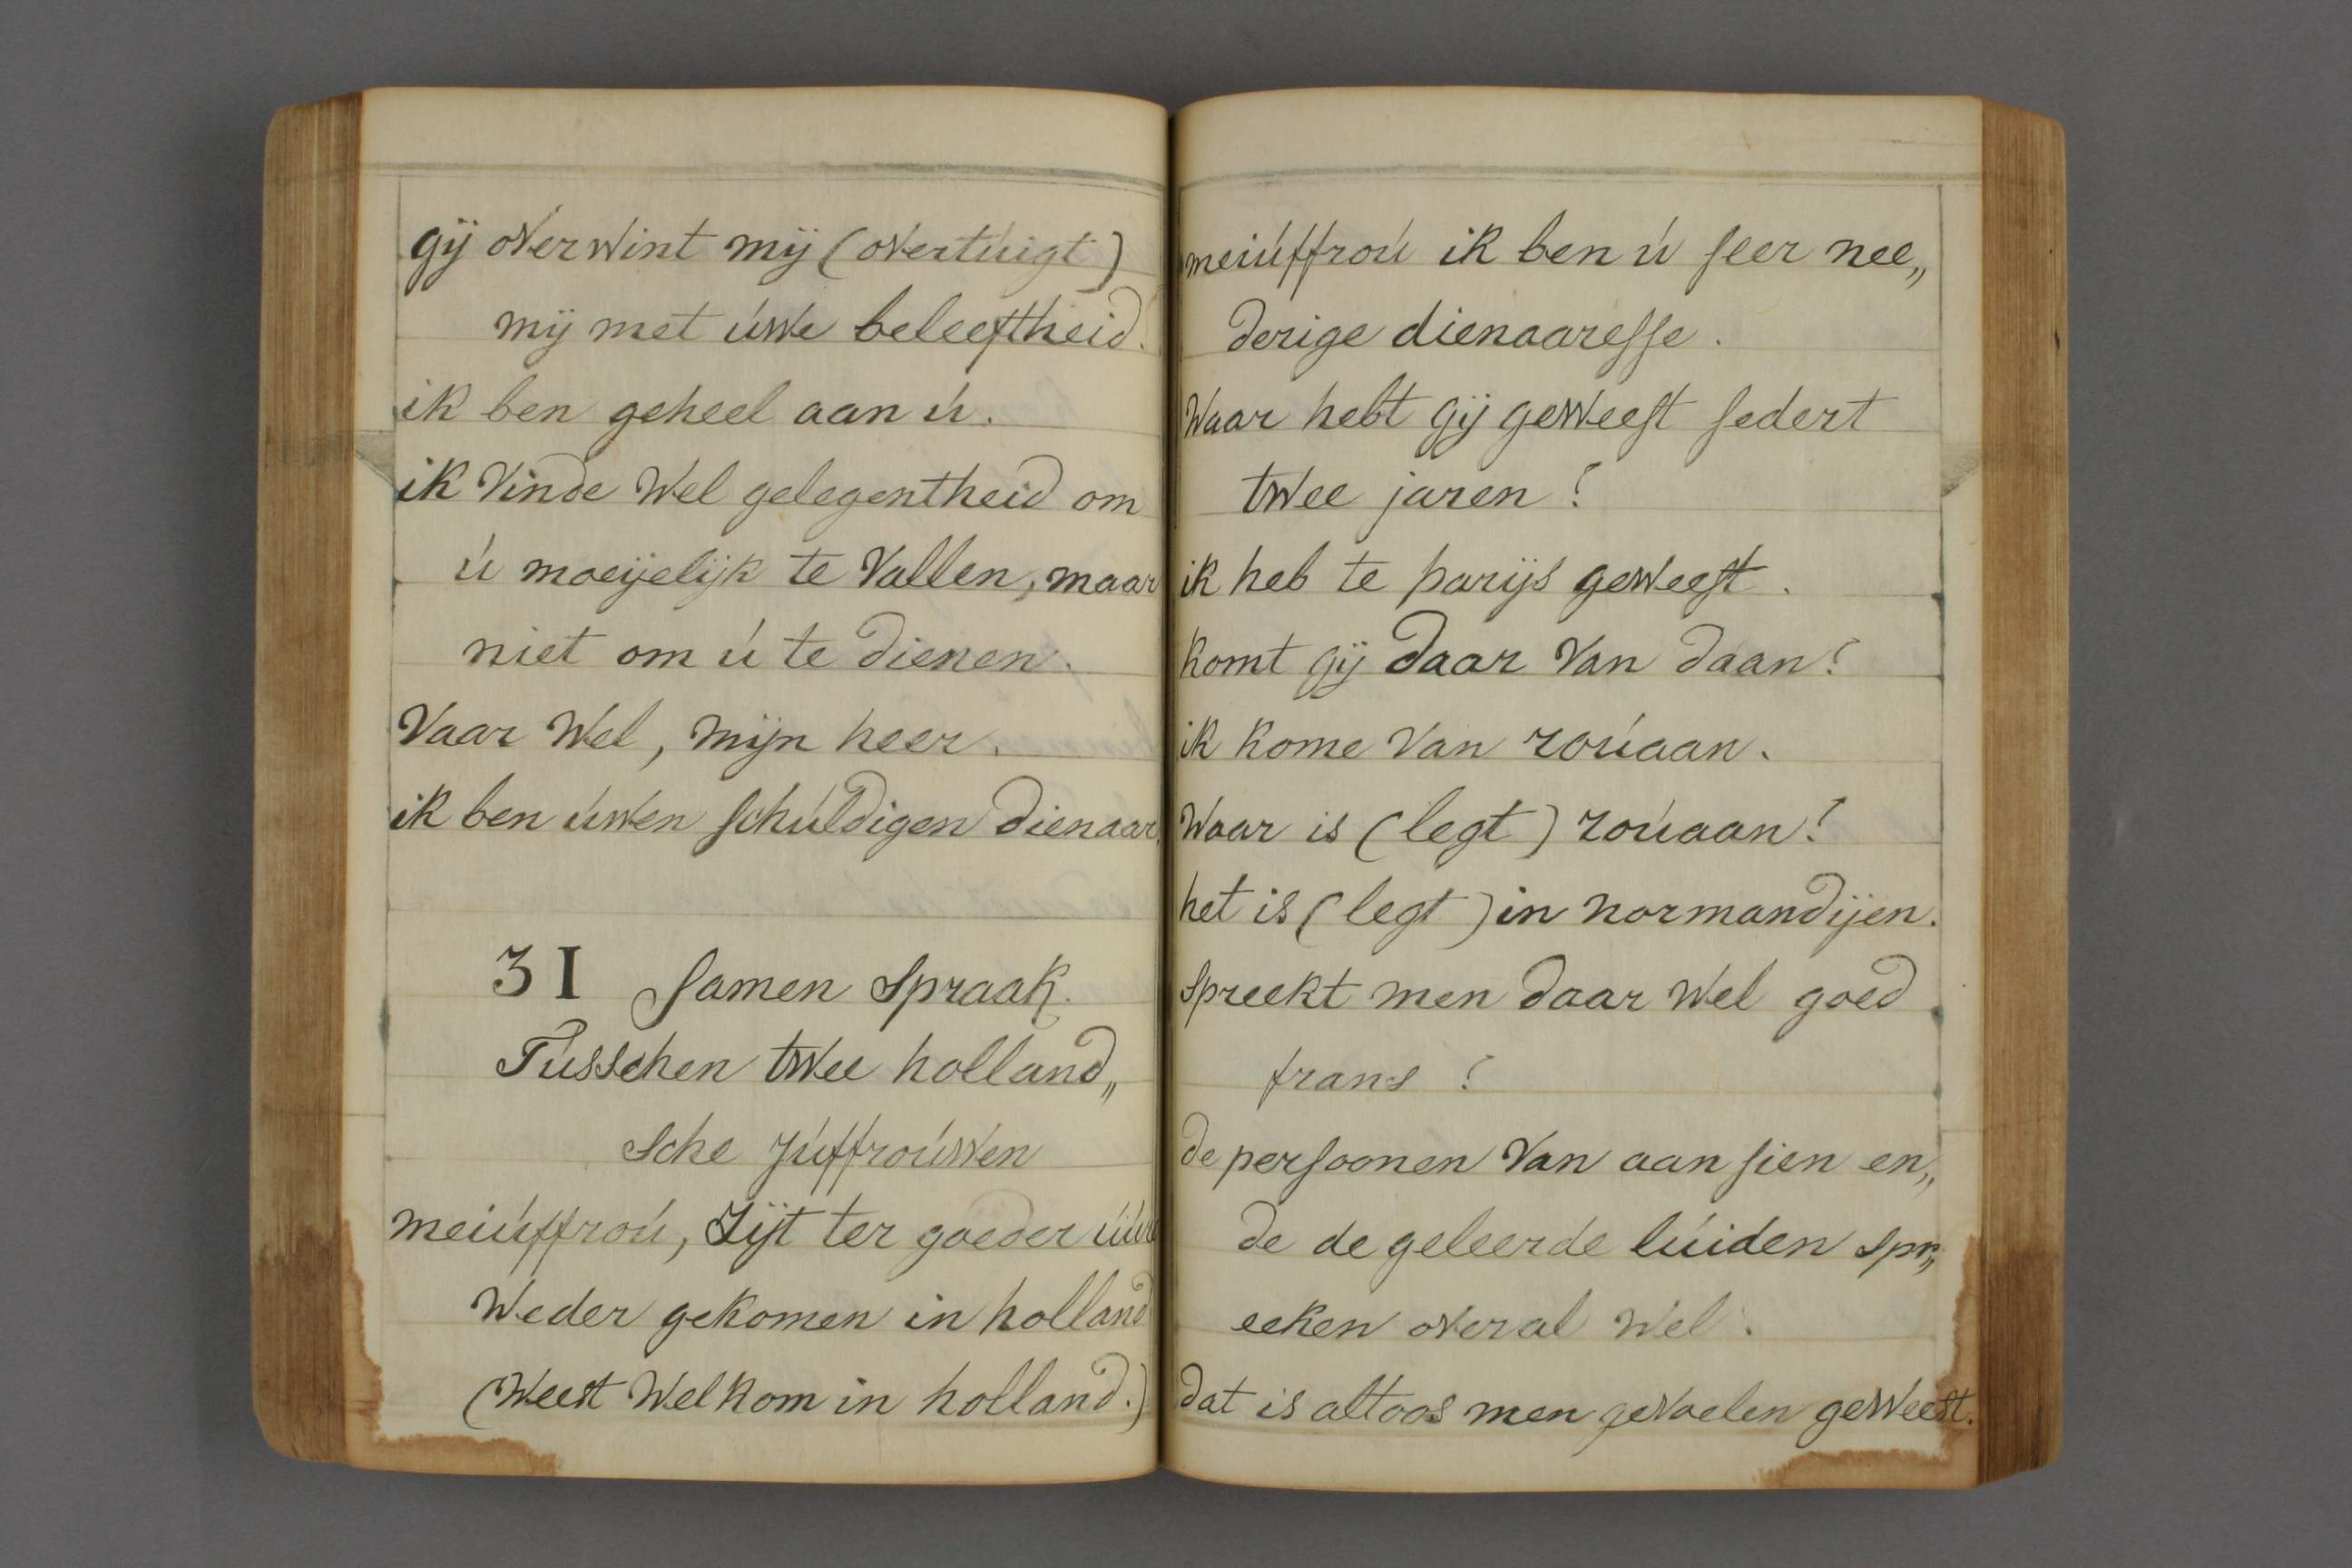 gij overwint mij (overtúigt)
mij met úwe beleeftheid.
ik ben geheel aan ú.
ik Vinde Wel gelegentheid om
ú moeijelijk te Vallen, maar
niet om ú te dienen.
Vaar Wel, mijn heer.
ik ben úwen ſchúldigen dienaar.
31 ſamen spraak.
Tússchen twee holland„
sche júffroúwen
meiúffroú, Zijt ter goeder úúre
Weder gekomen in holland
(Weest Welkom in holland.)
meiúffroú ik ben ú ſeer nee„
derige dienaareſſe.
Waar hebt gij geweeſt ſedert
twee jaren?
ik heb te parijs geweeſt.
komt gij daar Van daan?
ik kome Van roúaan.
Waar is (legt) roúaan?
het is (legt) in normandijen.
spreekt men daar Wel goed
frans?
de perſoonen Van aan ſien en„
de de geleerde lúiden spr„
eeken overal Wel.
dat is altoos men gevoelen geweest.